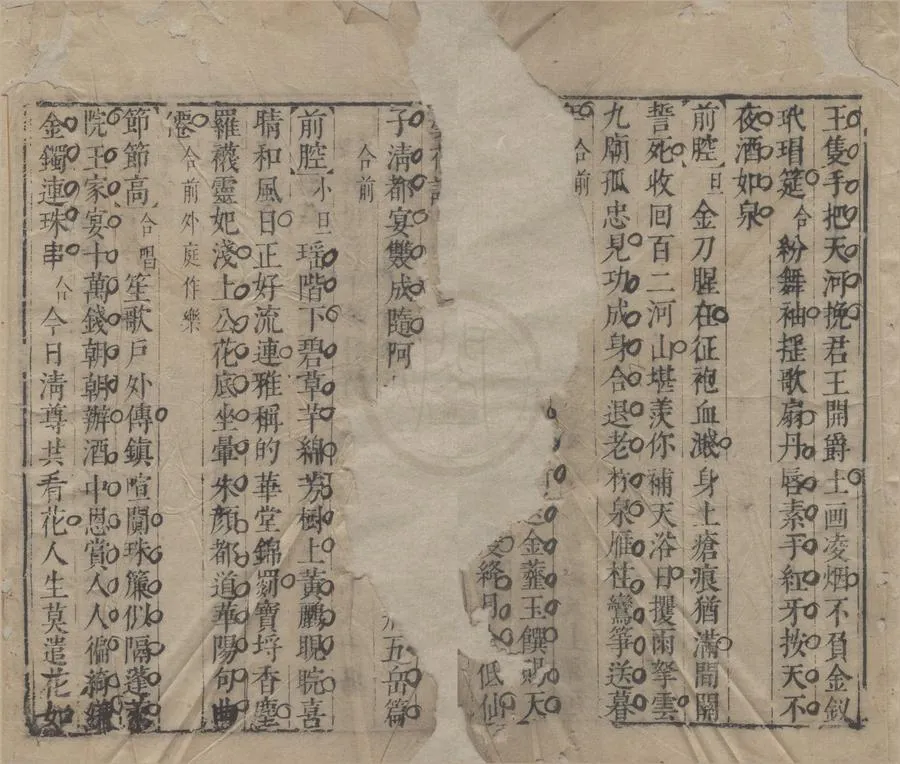 王隻手把天河挽君王開爵土画凌烟不負金釵
玳瑁筵合粉舞袖揺歌扇丹唇素手紅牙按天不
夜酒如泉
前腔旦金刀腥在征袍血濺身上瘡痕猶滿間關
誓死收回百二河山堪羨你補天浴日攫雨拏雲
九廟孤忠見功成身合退老林泉雁柱鸞箏送暮
合前
金虀玉饌賜天
絳月低仙
五岳篇
子淸都宴雙成隨阿
合前
前腔小旦瑶階下碧草芊綿芳樹上黃鸝睍睆喜
晴和風日正好流連雅稱的華堂錦罽寶埒香塵
羅襪靈妃淺上公花底坐暈朱顏都道華陽句曲
合前外庭作樂
節節高合唱笙歌戶外傳鎮喧闐珠簾似隔蓬萊
院王家宴十萬錢朝朝辦酒中恩賞人人徧綺
金鐲連珠串合今日淸尊共看花人生莫遣花如